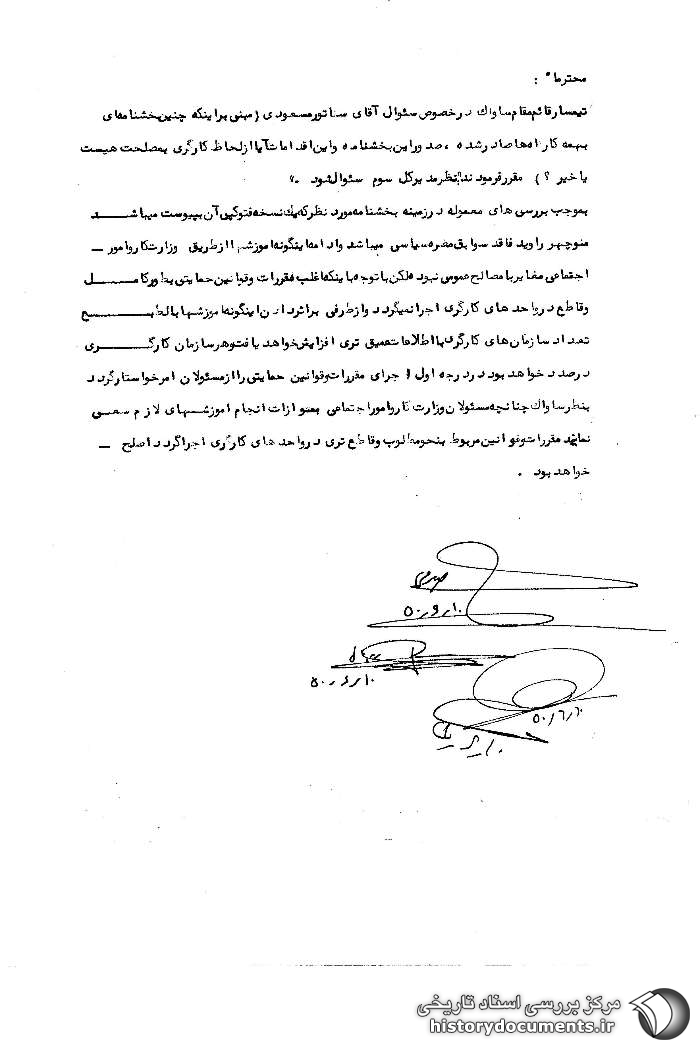 محترما" :
تیمسار قائم‌مقام ساواك در خصوص سئوال آقای سناتور مسعودی (مبنی بر اینکه چنین بخشنامه‌ای
بهمه کارخانه‌ها صادر شده ، صدور این بخشنامه و این اقدامات آیا از لحاظ کارگری بمصلحت هست
یا خیر ؟) مقرر فرمودند "نظر مدیرکل سوم سئوال شود ."
بموجب بررسی های معموله در زمینه بخشنامه مورد نظر که یك نسخه فتوکپی آن بپیوست میباشد
منوچهر راوید فاقد سوابق مضره سیاسی میباشد و ادامه اینگونه اموزشها از طریق وزارت کار و امور ـ
اجتماعی مغایر با مصالح عمومی نبوده لکن با توجه باینکه اغلب مقررات و قوانین حمایتی بطور کامل
و قاطع در واحد های کارگری اجرا نمیگردد و از طرفی براثر دادن اینگونه اموزشها بالطبع
تعداد سازمان‌های کارگری با اطلاعات عمیق تری افزایش خواهد یافت و هر سازمان کارگری
درصدد خواهد بود در درجه اول اجرای مقررات و قوانین حمایتی را از مسئولان امر خواستار گردد
بنظر ساواك چنانچه مسئولان وزارت کار و امور اجتماعی بموازات انجام اموزشهای لازم سعی
نمایند مقررات و قوانین مربوط بنحو مطلوب و قاطع تری در واحد های کارگری اجرا گردد اصلح ـ
خواهد بود .
۵۰/۶/۱۰
۵۰/۶/۱۰
۵۰/۶/۱۰
مرکز بررسی اسناد تاریخی
historydocuments.ir